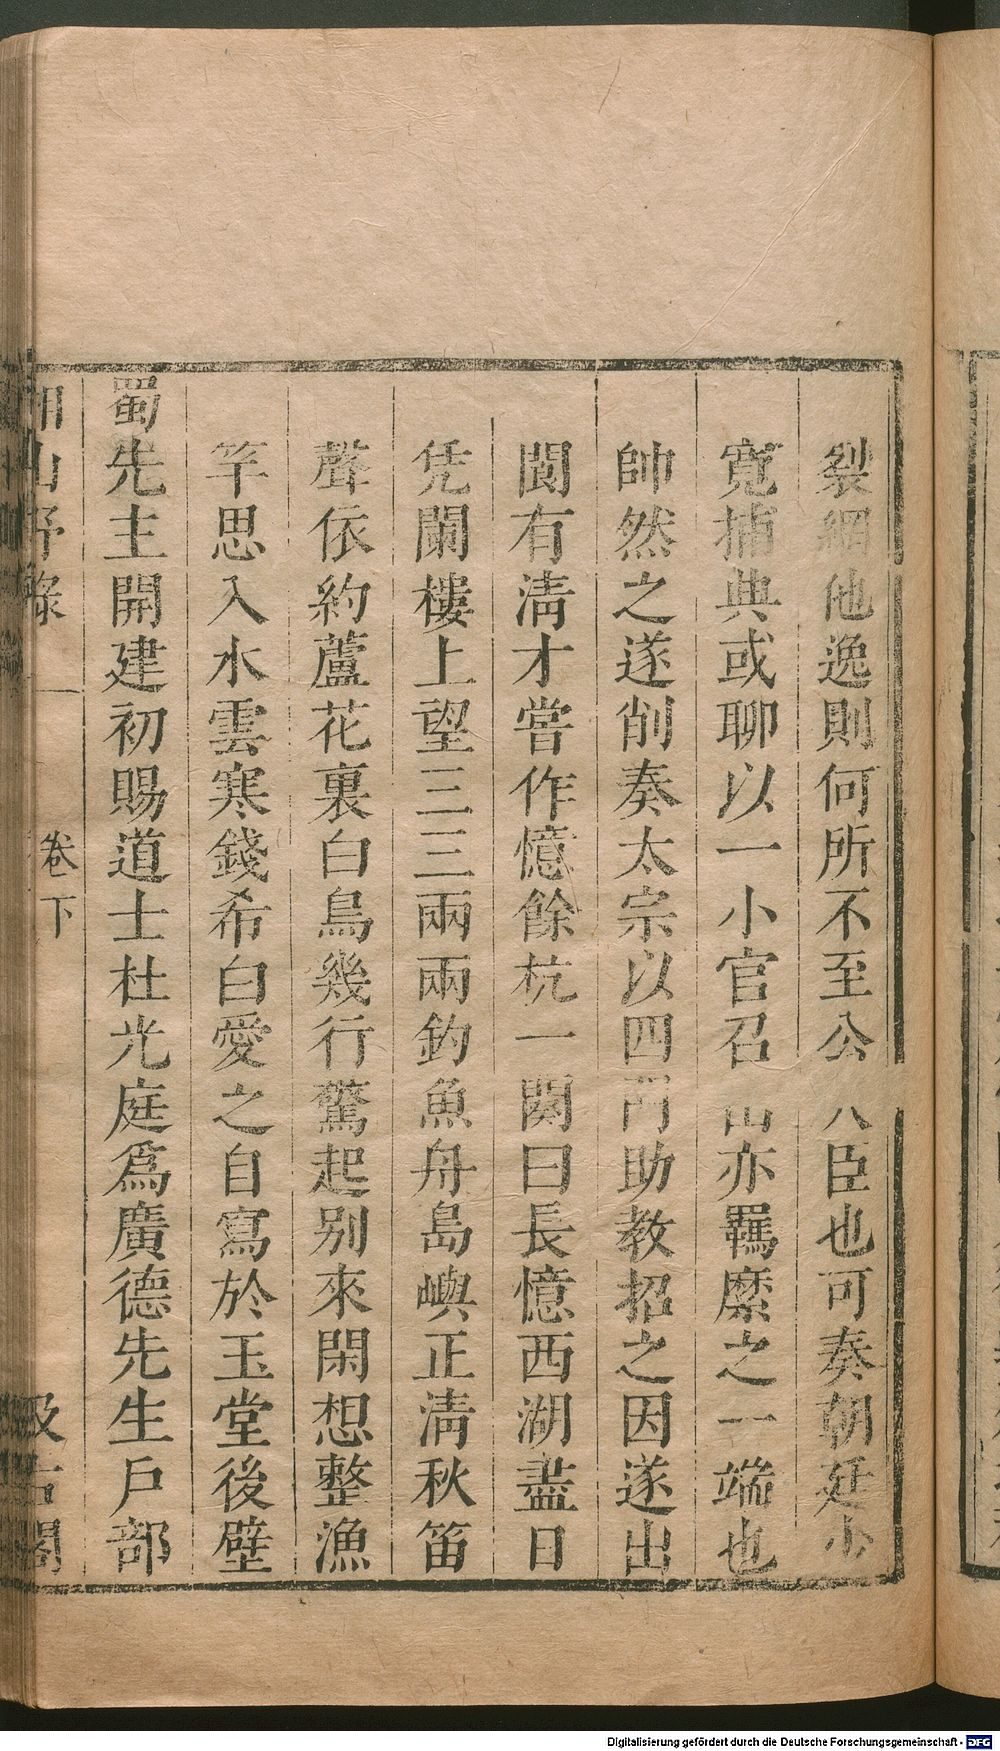 裂網他逸則何所不至公 臣也可奏朝廷少
寬捕典或聊以一小官召 亦羈縻之一端也
帥然之遂削奏太宗以四門助教招之因遂出
閬有淸才嘗作憶餘杭一闋曰長憶西湖盡日
凭闌樓上望三三兩兩釣魚舟島嶼正淸秋笛
聲依約蘆花裏白鳥幾行驚起别來閑想整漁
竿思入水雲寒錢希白愛之自寫於玉堂後壁
蜀先主開建初賜道士杜光庭爲廣德先生戶部
湘山野錄 卷下 汲古閣
Digitalisierung gefördert durch die Deutsche Forschungsgemeinschaft - DFG